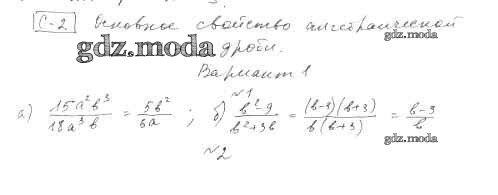 С-2 Основное свойство алгебраической
gdz.moda
gdz.moda дроби.
Вариант 1
№1
а) 15a²b³/18a³b = 5b²/6a ; б) b²-9/b²+3b = (b-3)(b+3)/b(b+3) = b-3/b
gdz.moda
№2